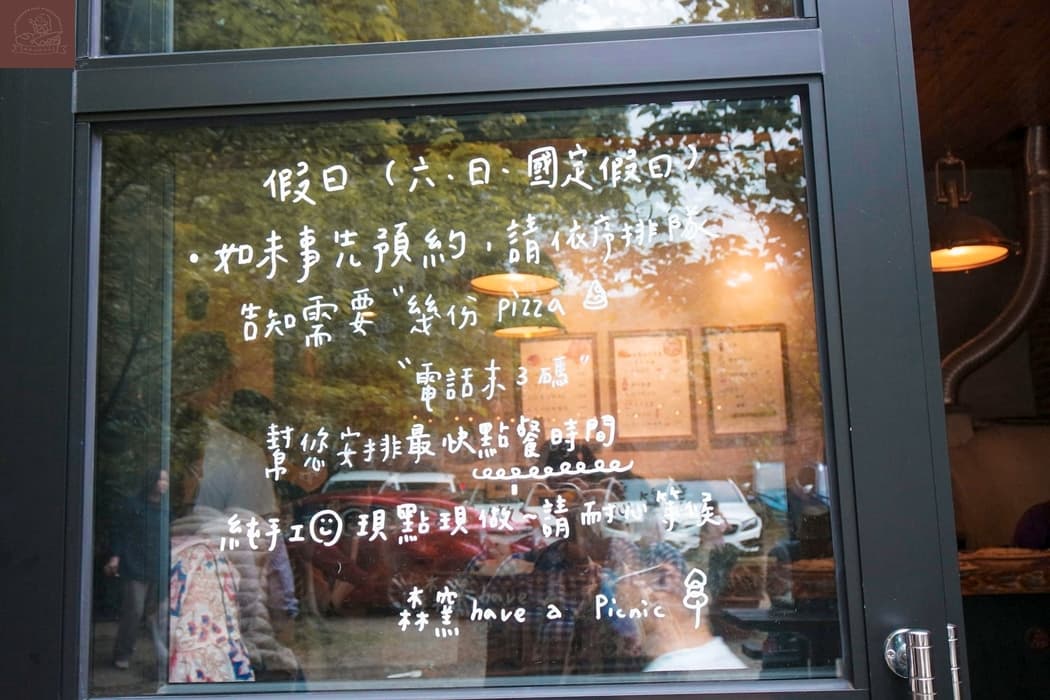 假日（六、日、國定假日）
·如未事先預約，請依序排隊
告知需要"幾份 pizza
"電話末3碼"
幫您安排最快點餐時間
純手工 現點現做~請耐心等候
森窯 have a Picnic